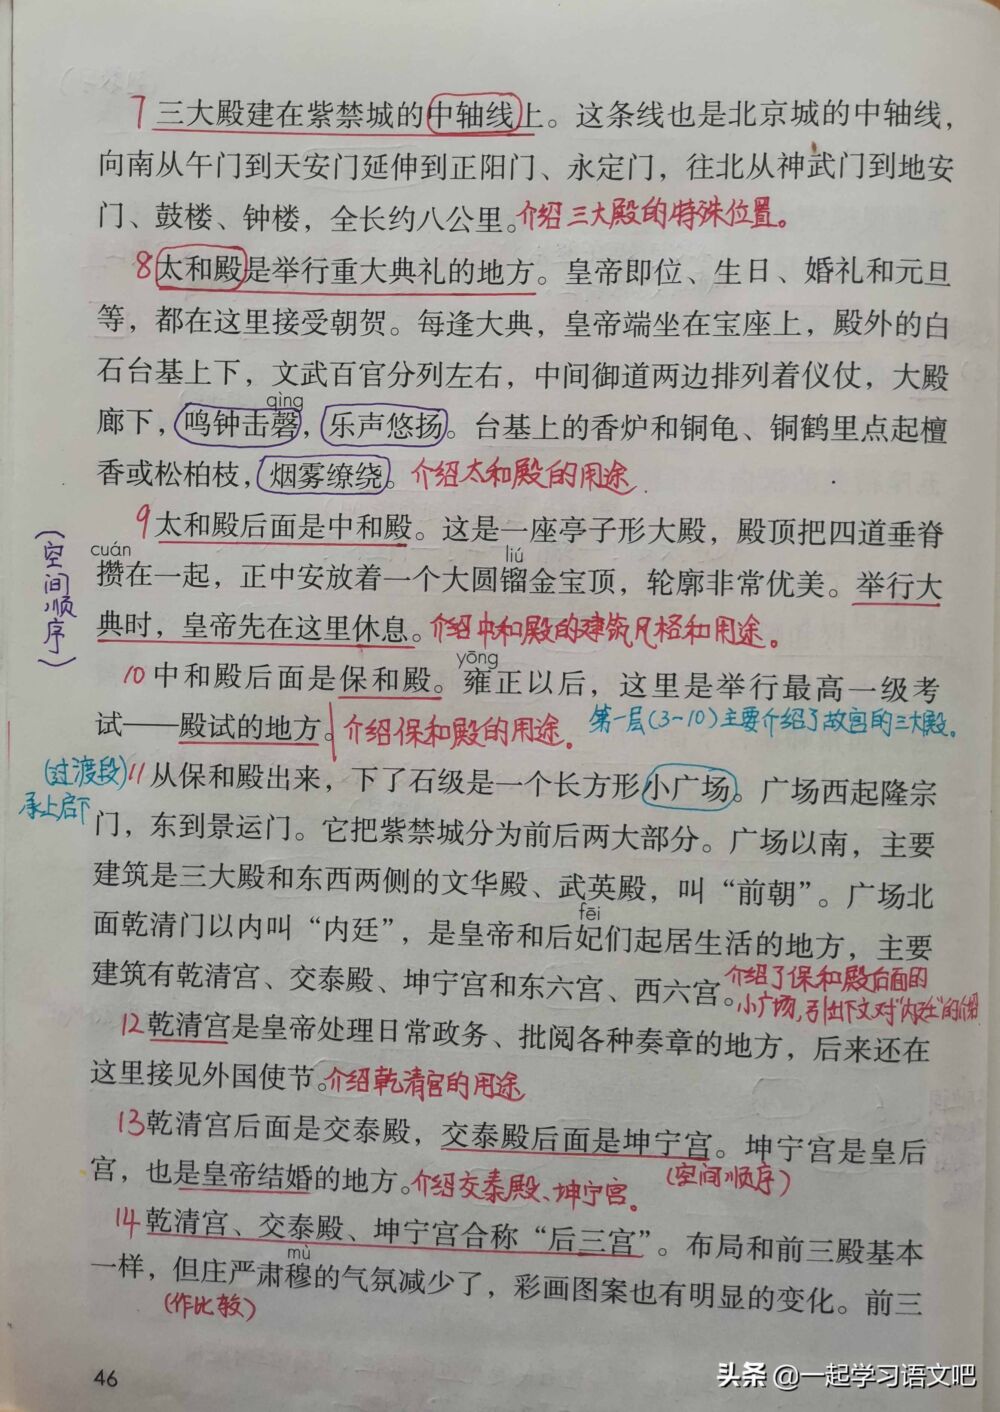 7三大殿建在紫禁城的中轴线上。这条线也是北京城的中轴线，
向南从午门到天安门延伸到正阳门、永定门，往北从神武门到地安
门、鼓楼、钟楼，全长约八公里。介绍三大殿的特殊位置。
8太和殿是举行重大典礼的地方。皇帝即位、生日、婚礼和元旦
等，都在这里接受朝贺。每逢大典，皇帝端坐在宝座上，殿外的白
石台基上下，文武百官分列左右，中间御道两边排列着仪仗，大殿
qìng
廊下，鸣钟击磬，乐声悠扬。台基上的香炉和铜龟、铜鹤里点起檀
香或松柏枝，烟雾缭绕。介绍太和殿的用途
9太和殿后面是中和殿。这是一座亭子形大殿，殿顶把四道垂脊
(空间顺序)
cuán liú
攒在一起，正中安放着一个大圆镏金宝顶，轮廓非常优美。举行大
典时，皇帝先在这里休息。介绍中和殿的建筑风格和用途。
yōng
10中和殿后面是保和殿。雍正以后，这里是举行最高一级考
试——殿试的地方。介绍保和殿的用途。第一层(3-10)主要介绍了故宫的三大殿。
(过渡段)
承上启下
11从保和殿出来，下了石级是一个长方形小广场。广场西起隆宗
门，东到景运门。它把紫禁城分为前后两大部分。广场以南，主要
建筑是三大殿和东西两侧的文华殿、武英殿，叫“前朝”。广场北
fēi
面乾清门以内叫“内廷”，是皇帝和后妃们起居生活的地方，主要
建筑有乾清宫、交泰殿、坤宁宫和东六宫、西六宫。介绍了保和殿后面的
小广场，引出下文对“内廷”的介绍
12乾清宫是皇帝处理日常政务、批阅各种奏章的地方，后来还在
这里接见外国使节。介绍乾清宫的用途
13乾清宫后面是交泰殿，交泰殿后面是坤宁宫。坤宁宫是皇后
宫，也是皇帝结婚的地方。介绍交泰殿、坤宁宫。(空间顺序)
14乾清宫、交泰殿、坤宁宫合称“后三宫”。布局和前三殿基本
mù
一样，但庄严肃穆的气氛减少了，彩画图案也有明显的变化。前三
(作比较)
46
头条 @一起学习语文吧